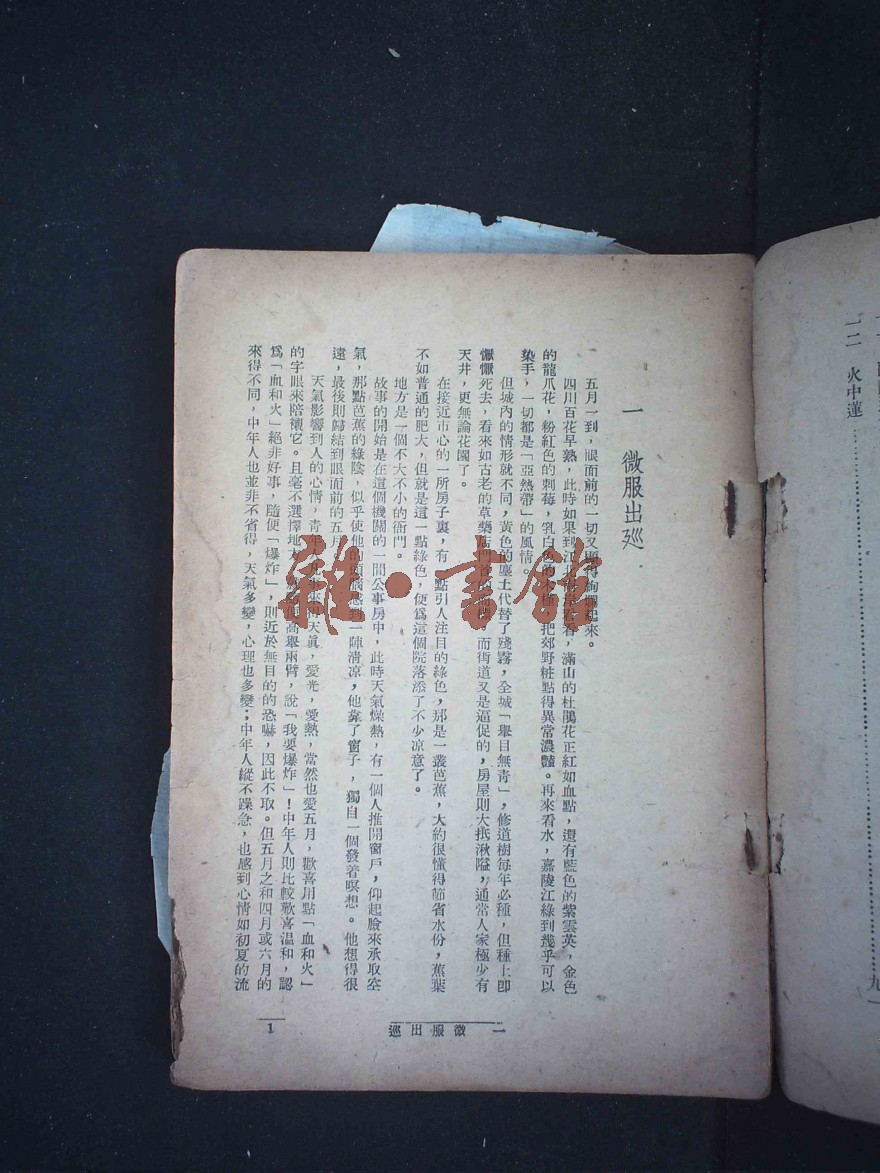 一二 火中蓮
九一
一 微服出巡
五月一到,眼面前的一切又
起來。
四川百花早熟,此時如果到江
看,滿山的杜鵑花正紅如血點,還有藍色的紫雲英,金色
的龍爪花,粉紅色的刺莓,乳白色的
把郊野粧點得異常濃豔。再來看水,嘉陵江綠到幾乎可以
染手,一切都是「亞熱帶」的風情
但城內的情形就不同,黃色的塵土代替了殘霧,全城「舉目無青」,修道樹每年必種,但種上卽
懨懨死去,看來如古老的草藥店門
而街道又是逼促的,房屋則大抵湫隘,通常人家極少有
天井,更無論花園了。
在接近市心的一所房子裏,有一點引人注目的綠色,那是一叢芭蕉,大約很懂得節省水份,蕉葉
不如普通的肥大,但就是這一點綠色,便爲這個院落添了不少涼意了。
地方是一個不大不小的衙門。
故事的開始是在這個機關的一間公事房中,此時天氣燥熱,有一個人推開窗戶,仰起臉來承取空
氣,那點芭蕉的綠陰,似乎使他的
感到一陣清凉,他靠了窗子,獨自一個發着暝想。他想得很
遠,最後則歸結到眼面前的五
天氣影響到人的心情,青年人
來得天眞,愛光,愛熱,當然也愛五月,歡喜用點「血和火」
的字眼來陪襯它。且毫不選擇地
便高舉兩臂,說「我要爆炸」!中年人則比較歡喜温和,認
爲「血和火」絕非好事,隨便「爆炸」,則近於無目的的恐嚇,因此不取。但五月之和四月或六月的
來得不同,中年人也並非不省得,天氣多變,心理也多變;中年人縱不躁急,也感到心情如初夏的流
一 微服出巡
1
雜·書館